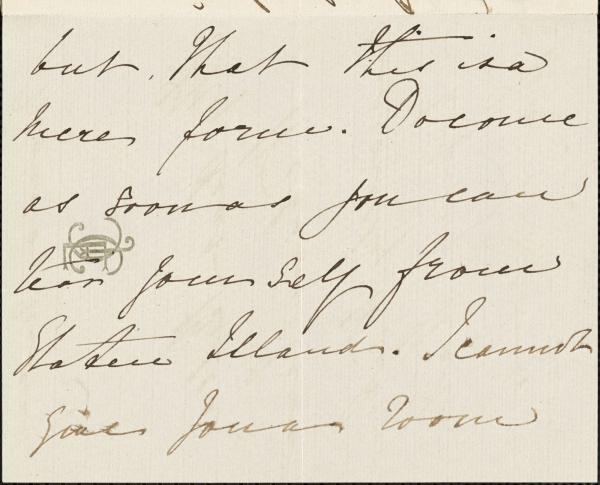 but, That this is a
mere form. Do come
as soon as you can
tear yourself from
Staten Island. I cannot
give you a room